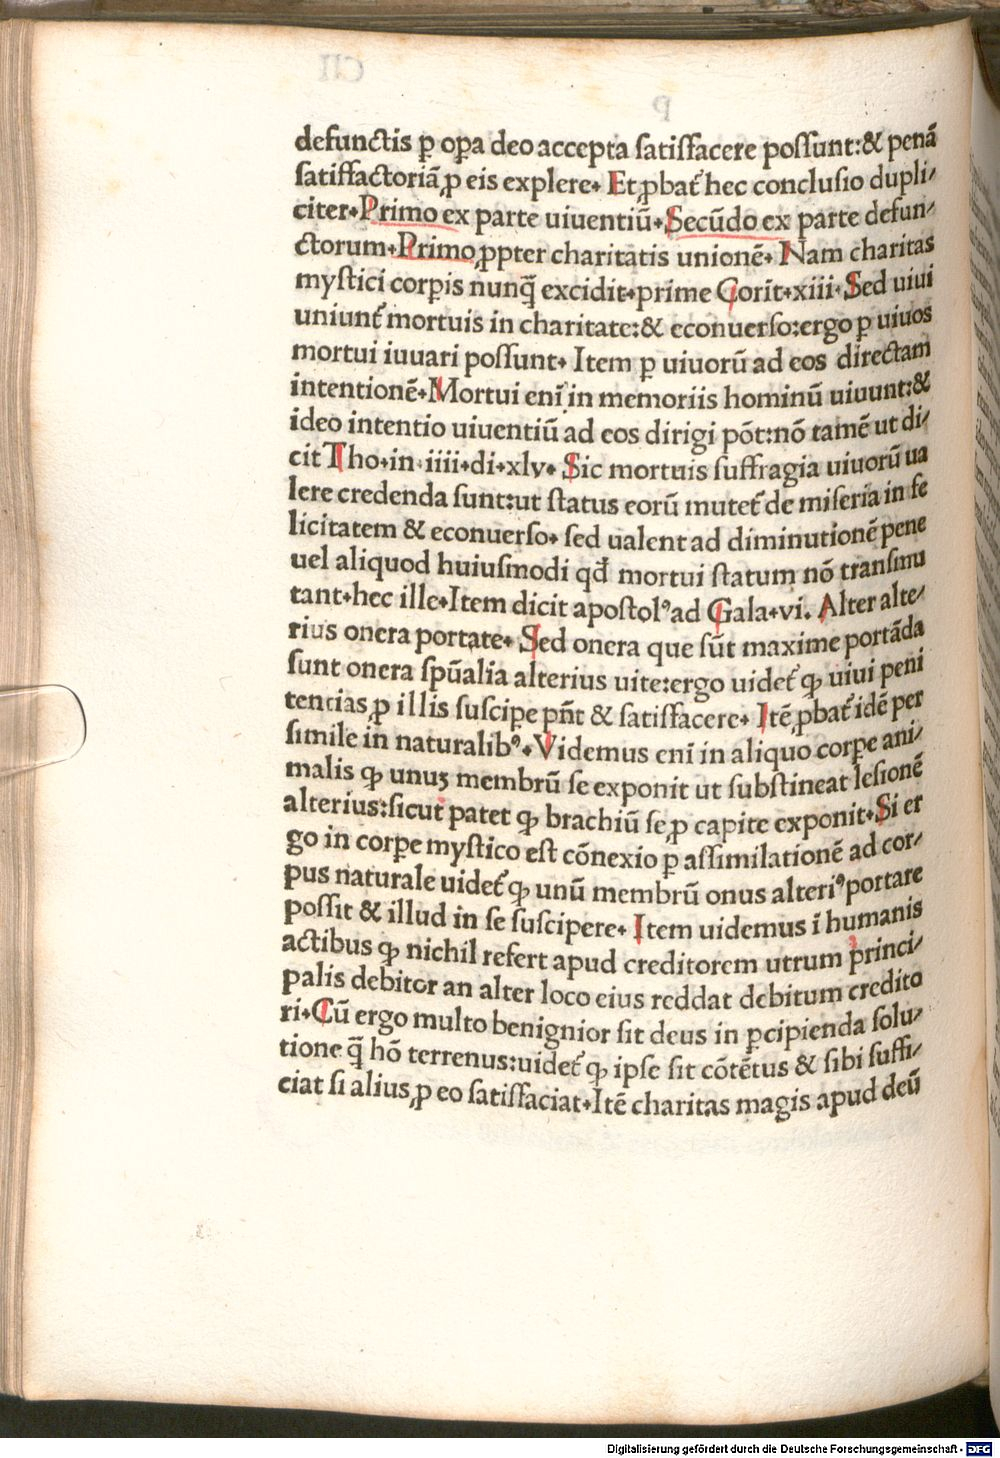 defunctis ꝑ oꝑa deo accepta satisfacere possunt:& penã
satisfactoriã ꝓ eis explere. Et ꝓbat᷑ hec conclusio dupli-
citer. Primo ex parte uiuentiũ. Secũdo ex parte defun-
ctorum. Primo ꝓpter charitatis unionẽ. Nam charitas
mystici corꝑis nunq̃ excidit. prime Corit. xiii. Sed uiui
uniunt᷑ mortuis in charitate:& econuerso:ergo ꝑ uiuos
mortui iuuari possunt. Item ꝑ uiuorũ ad eos directam
intentionẽ. Mortui eni᷑ in memoriis hominũ uiuunt:&
ideo intentio uiuentiũ ad eos dirigi põt:nõ tamẽ ut di-
cit Tho. in .iiii. di. xlv. Sic mortuis suffragia uiuorũ ua
lere credenda sunt:ut status eorũ mutet᷑ de miseria in fe
licitatem & econuerso. sed ualent ad diminutionẽ pene
uel aliquod huiusmodi qđ mortui statum nõ transmu
tant. hec ille. Item dicit apostolꝰ ad Gala. vi. Alter alte-
rius onera portate. Sed onera que sũt maxime portãda
sunt onera spũalia alterius uite:ergo uidet᷑ ꝙ uiui peni
tencias ꝓ illis suscipe pñt & satisfacere. Itẽ ꝓbat᷑ idẽ per
simile in naturalibꝰ. Videmus eni᷑ in aliquo corꝑe ani-
malis ꝙ unuꝫ membrũ se exponit ut substineat lesionẽ
alterius:sicut patet ꝙ brachiũ se ꝓ capite exponit. Si er
go in corꝑe mystico est cõnexio ꝑ assimilationẽ ad cor-
pus naturale uidet᷑ ꝙ unũ membrũ onus alteriꝰ portare
possit & illud in se suscipere. Item uidemus ĩ humanis
actibus ꝙ nichil refert apud creditorem utrum princi-
palis debitor an alter loco eius reddat debitum credito
ri. Cũ ergo multo benignior sit deus in ꝑcipienda solu-
tione q̃ hõ terrenus:uidet᷑ ꝙ ipse sit cõtẽtus & sibi suffi-
ciat si alius ꝓ eo satisfaciat. Itẽ charitas magis apud deũ
Digitalisierung gefördert durch die Deutsche Forschungsgemeinschaft - DFG